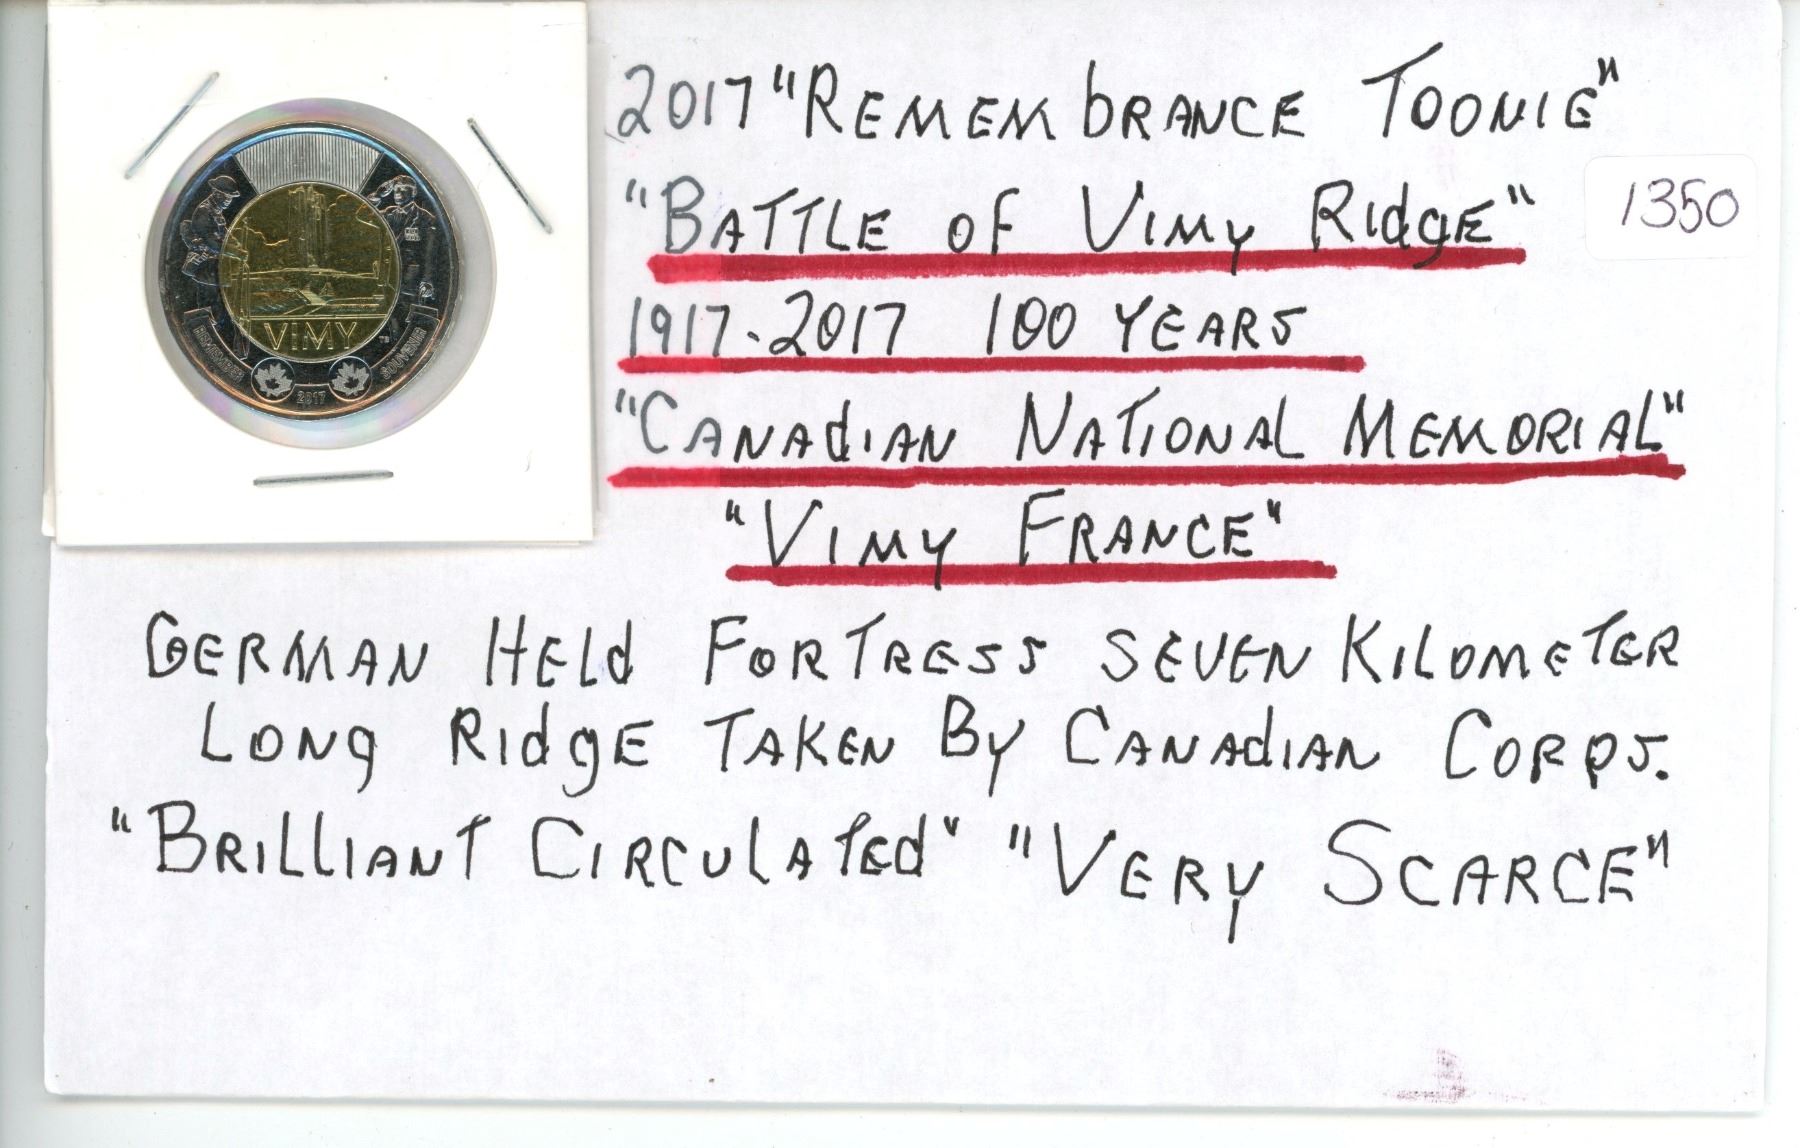 2017 "REMEMbRANCE TOONIE"
"BATTLE OF VIMY RIdgE"
1350
1917-2017 100 YEARS
"CANAdIAN NATIONAL MEMORIAL"
"VIMY FRANCE"
GERMAN HELd FORTRESS SEVEN KILOMETER
LONg RIdgE TAKEN By CANAdIAN CORPS.
"BRILLIANT CIRCULATEd" "VERY SCARCE"
VIMY
TB
REMEMBER
SOUVENIR
2017